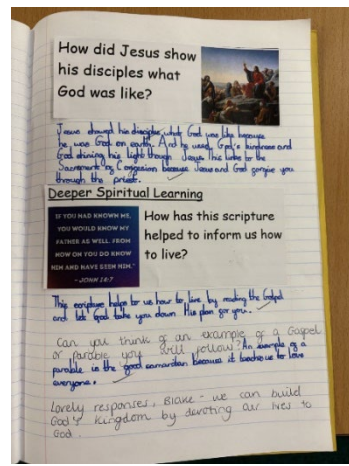 How did Jesus show
his disciples what
God was like?
Jesus showed his disciples what God was like because
he was God on earth. And he used God's kindness and
God shining his light though Jesus. This links to the
Sacrament of Confession because Jesus and God forgive you
through the priest.
Deeper Spiritual Learning
IF YOU HAD KNOWN ME,
YOU WOULD KNOW MY
FATHER AS WELL. FROM
NOW ON YOU DO KNOW
HIM AND HAVE SEEN HIM."
- JOHN 14:7
How has this scripture
helped to inform us how
to live?
This scripture helps to us how to live by reading the Gospel
and let God take you down His plan for you.
Can you think of an example of a Gospel
or parable you will follow? An example of a
parable is the good samaritan because it teaches us to love
everyone.
Lovely responses, Blake - we can build
God's Kingdom by devoting our lives to
God.